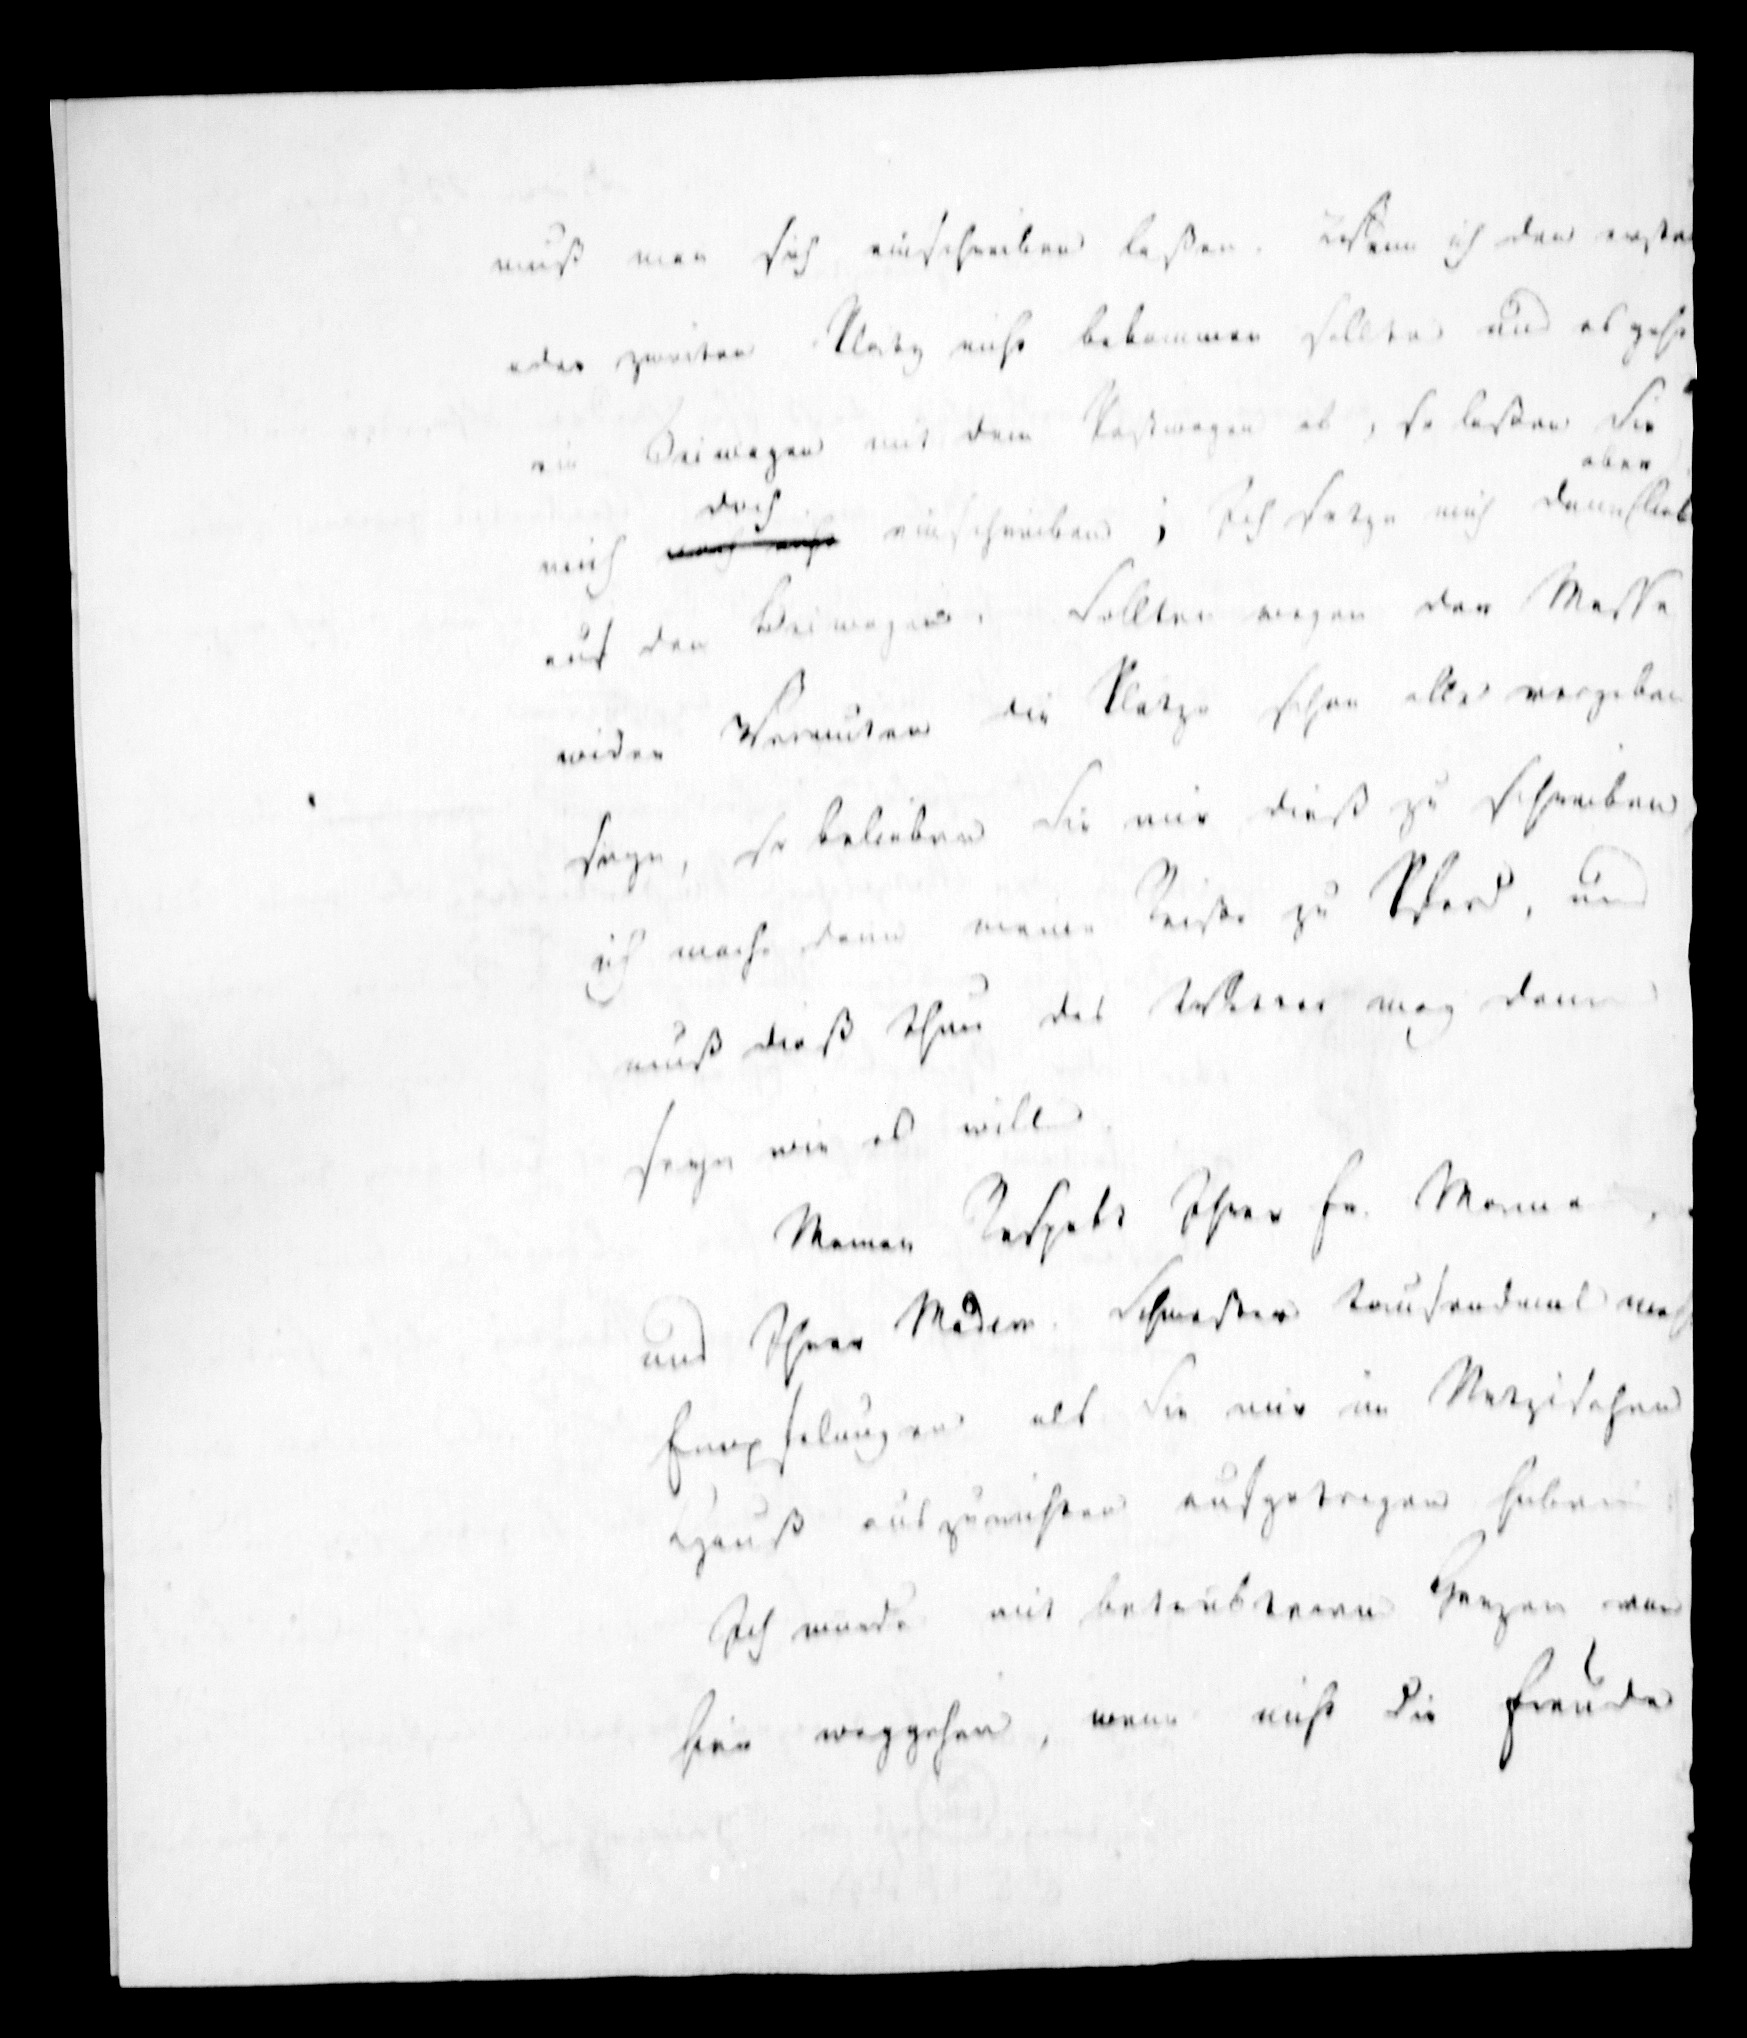 muß man sich einschreiben laßen. Wenn ich den ersten
oder zweiten Platz nicht bekommen sollte und es geht
ein Beiwagen mit dem Postwagen ab, so laßen Sie
aber
doch
mich einschreiben; Ich setze mich dann
auf den Beiwagen. Sollten wegen der Messe
wider Vermuten die Plätze schon alle vergeben
seyn, so belieben Sie mir dieß zu schreiben,
ich mache dann meine Reise zu Pferd, und
muß dieß thun das Wetter mag dann
seyn wie es will.
Meinen Respekt Ihrer Fr. Mama,
und Ihrer Schwester tausendmal mehr
Empfelungen als Sie mir im
Hauß auszurichten aufgetragen haben.
Ich würde mit betrübterem Herzen von
hier weggehen, wenn nicht die Freude